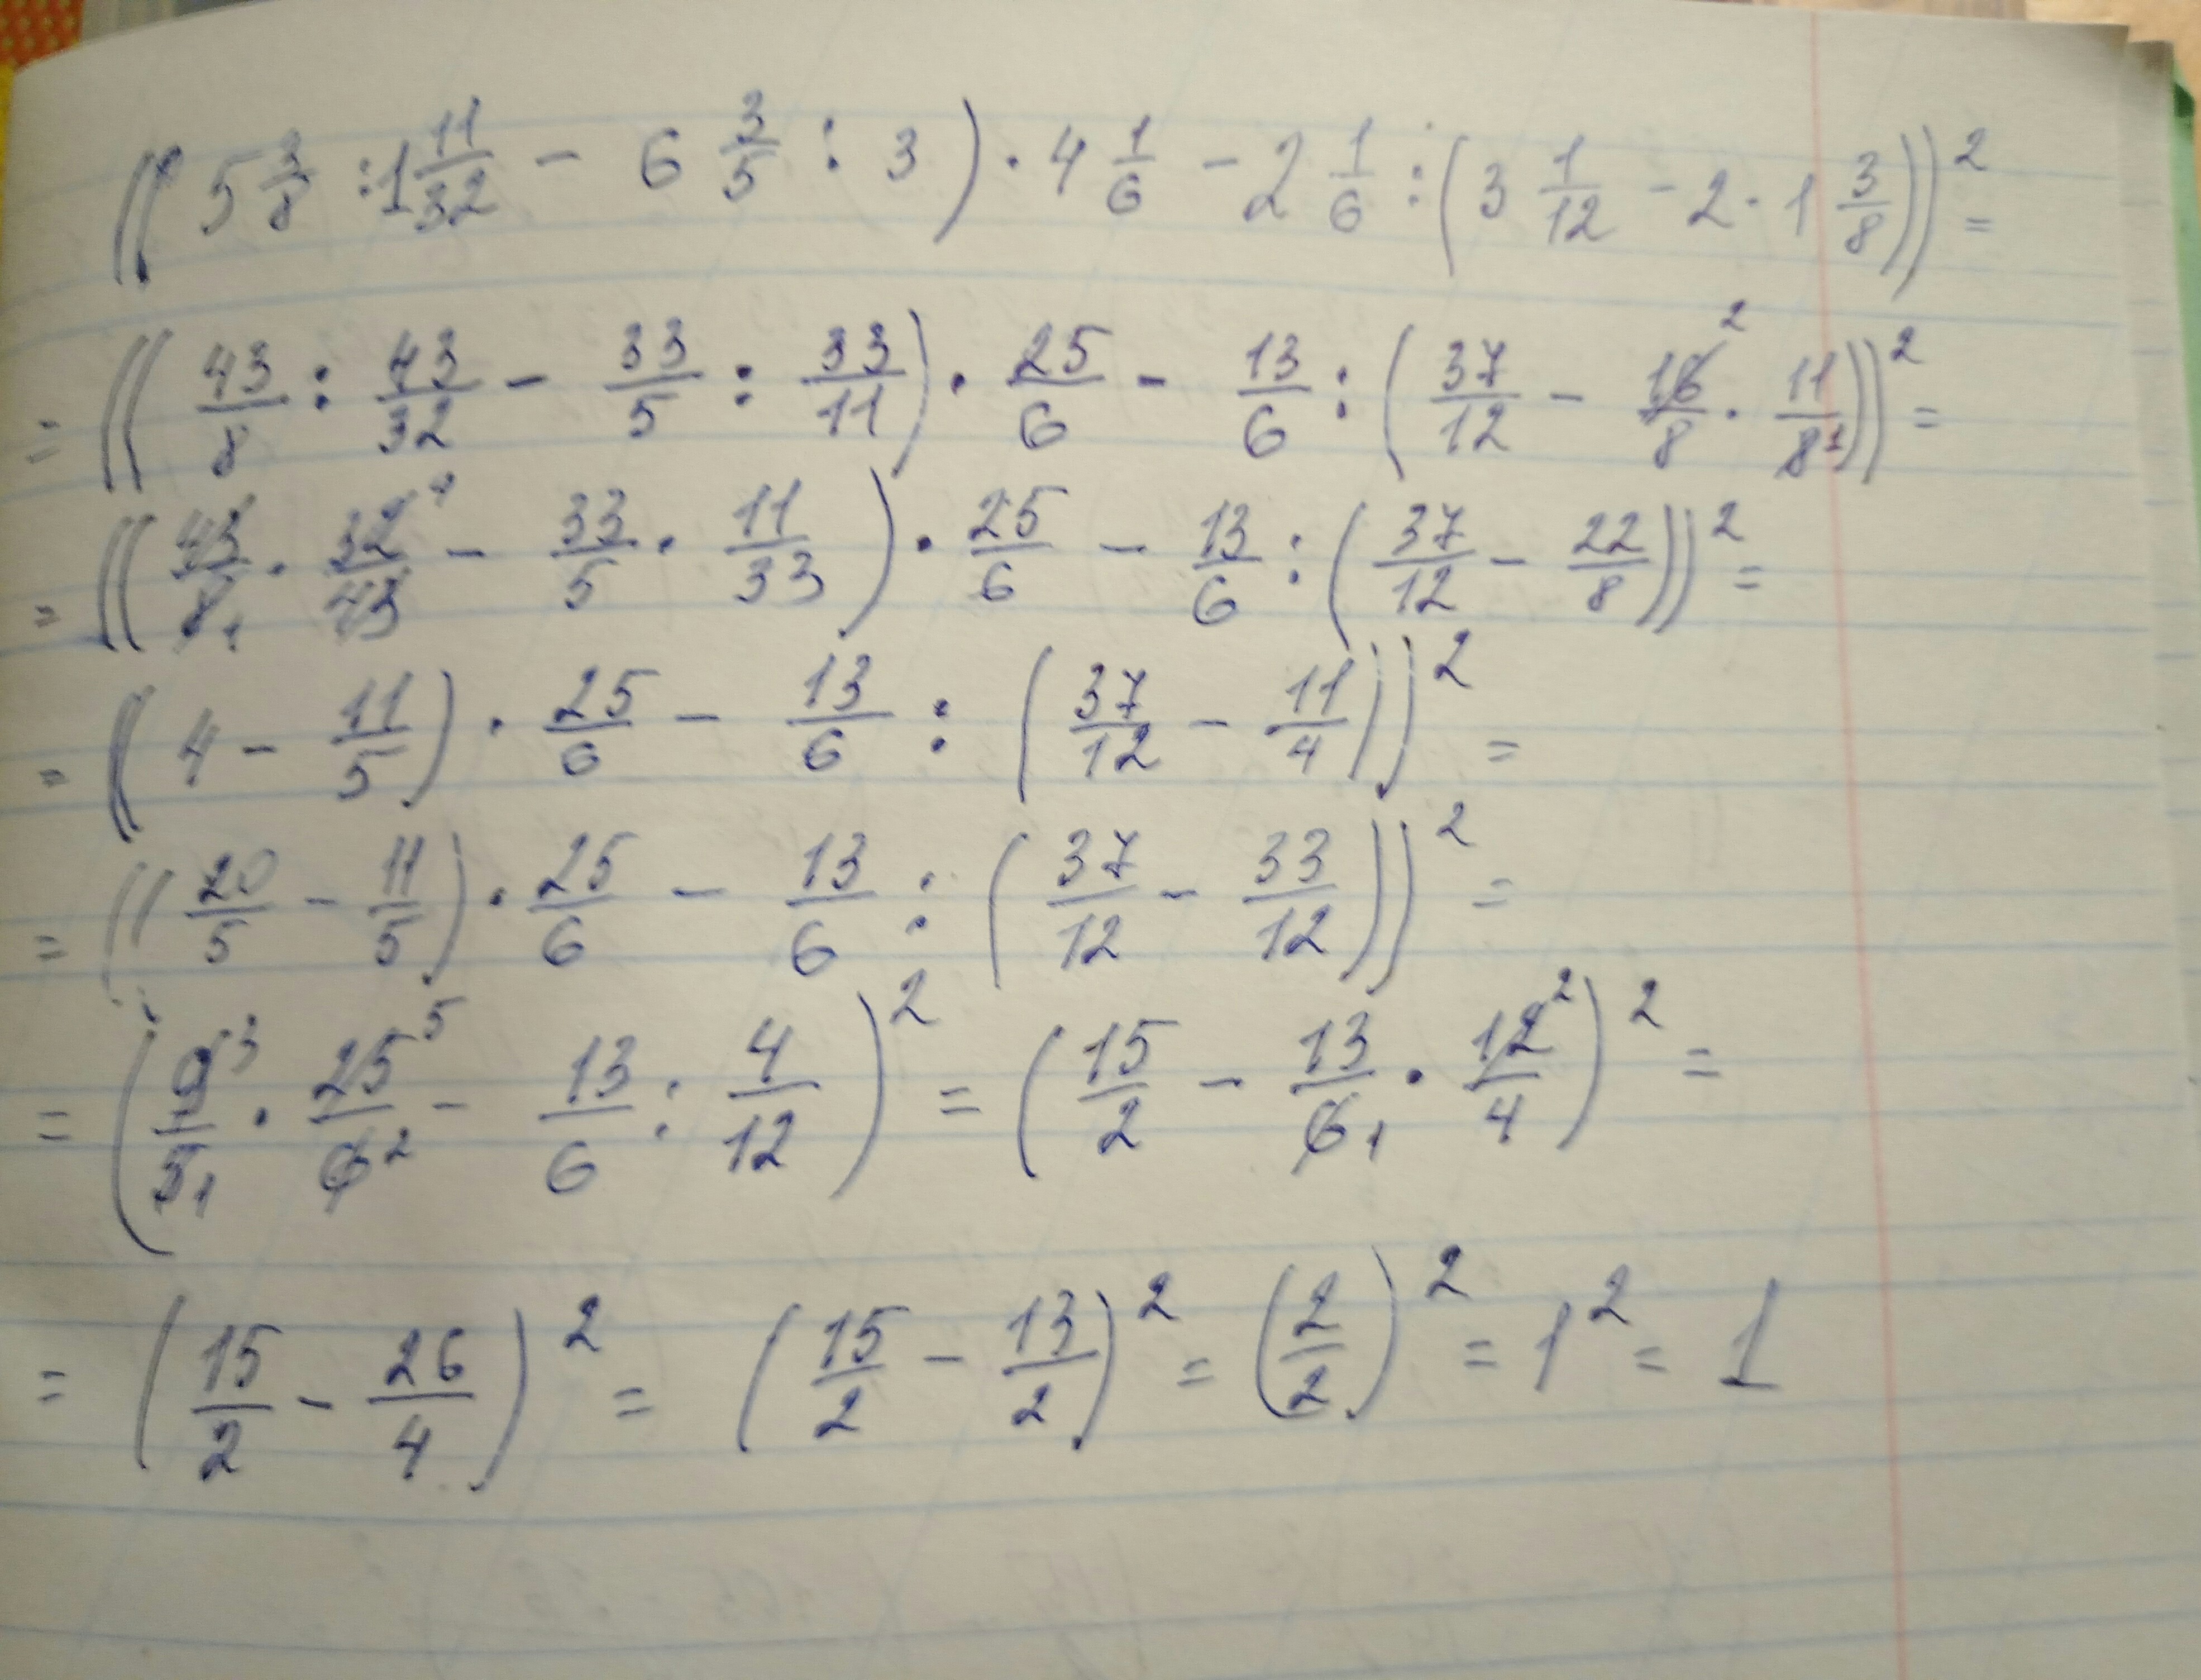 ((5 3/8 : 1 11/32 - 6 3/5 : 3) · 4 1/6 - 2 1/6 : (3 1/12 - 2 · 1 3/8))² =
= ((43/8 : 43/32 - 33/5 : 33/11) · 25/6 - 13/6 : (37/12 - 16²/8 · 11/8₁))² =
= ((43/8₁ · 32⁴/43 - 33/5 · 11/33) · 25/6 - 13/6 : (37/12 - 22/8))² =
= ((4 - 11/5) · 25/6 - 13/6 : (37/12 - 11/4))² =
= ((20/5 - 11/5) · 25/6 - 13/6 : (37/12 - 33/12))² =
= (9³/5₁ · 25⁵/6₂ - 13/6 : 4/12)² = (15/2 - 13/6₁ · 12²/4)² =
= (15/2 - 26/4)² = (15/2 - 13/2)² = (2/2)² = 1² = 1